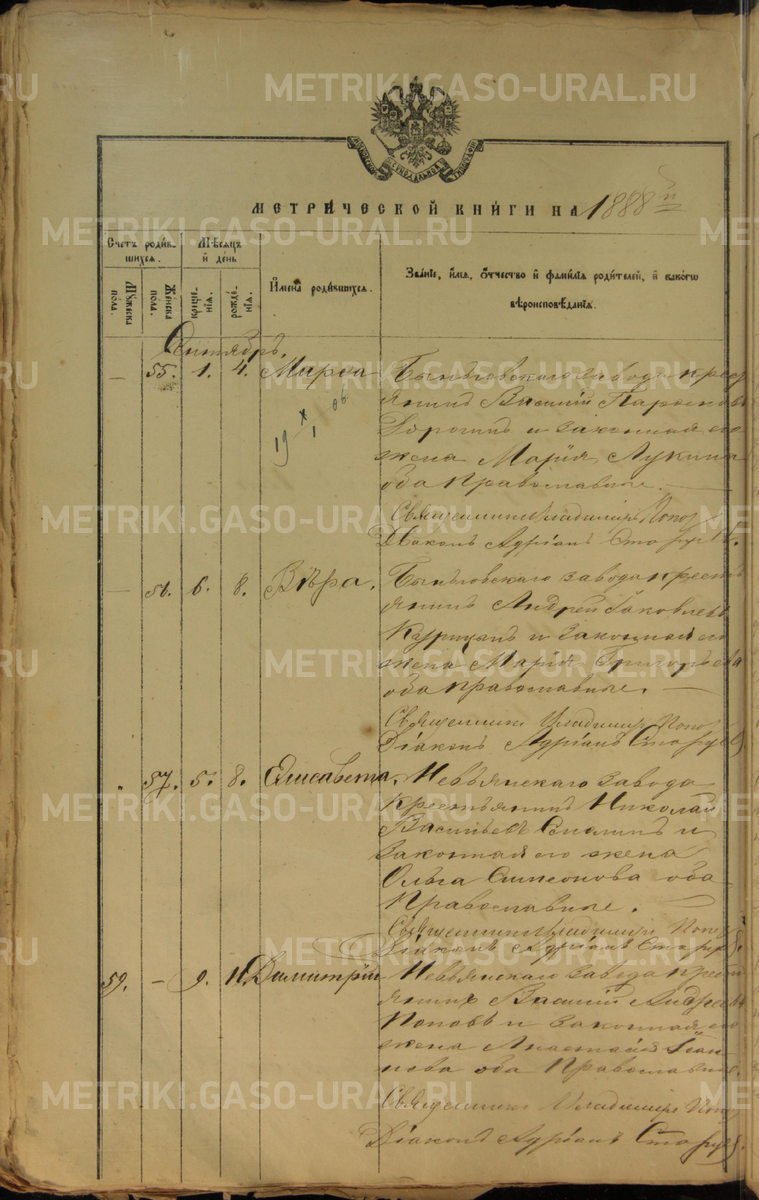 METRIKI.GASO-URAL.RU
МЕТРИ́ЧЕСКОЙ КНИ́ГИ НА 1888й
Счетъ роди́в-
шихся.
Мужеска
полъ.
Женска
полъ.
Мѣсяцъ
и день
креще́-
нія.
рожде́-
нія.
Имена роди́вшихся.
Званіе, имя, отчество и фамилія родителей, и какого
вѣроисповѣданія.
Сентябрь.
— 55. 1. 4. Марѳа
Быньговскаго завода крест
янинъ Василій
и законная его
жена Марія Лукина
оба православные.
Священникъ Владиміръ Попов
Діаконъ Адріанъ
19 X/1 06
— 56. 6. 8. Вѣра.
Быньговскаго завода кресть
янинъ Андрей Іаковлевъ
и законная его
жена Марія Григорьева
оба православные. —
Священникъ Владиміръ Попов
Діаконъ Адріанъ
57. 5. 8. Елисавета.
Невьянскаго завода
крестьянинъ Николай
Васильевъ и
законная его жена
Ольга Симеонова оба
Православные.
Священникъ Владиміръ Попов
Діаконъ Адріанъ
59. — 9. 11. Димитрій
Невьянскаго завода крест
янинъ Василій Андреевъ
Поповъ и законная его
жена Анастасія Іоан-
нова оба Православные.
Священникъ Владиміръ Попов
Діаконъ Адріанъ